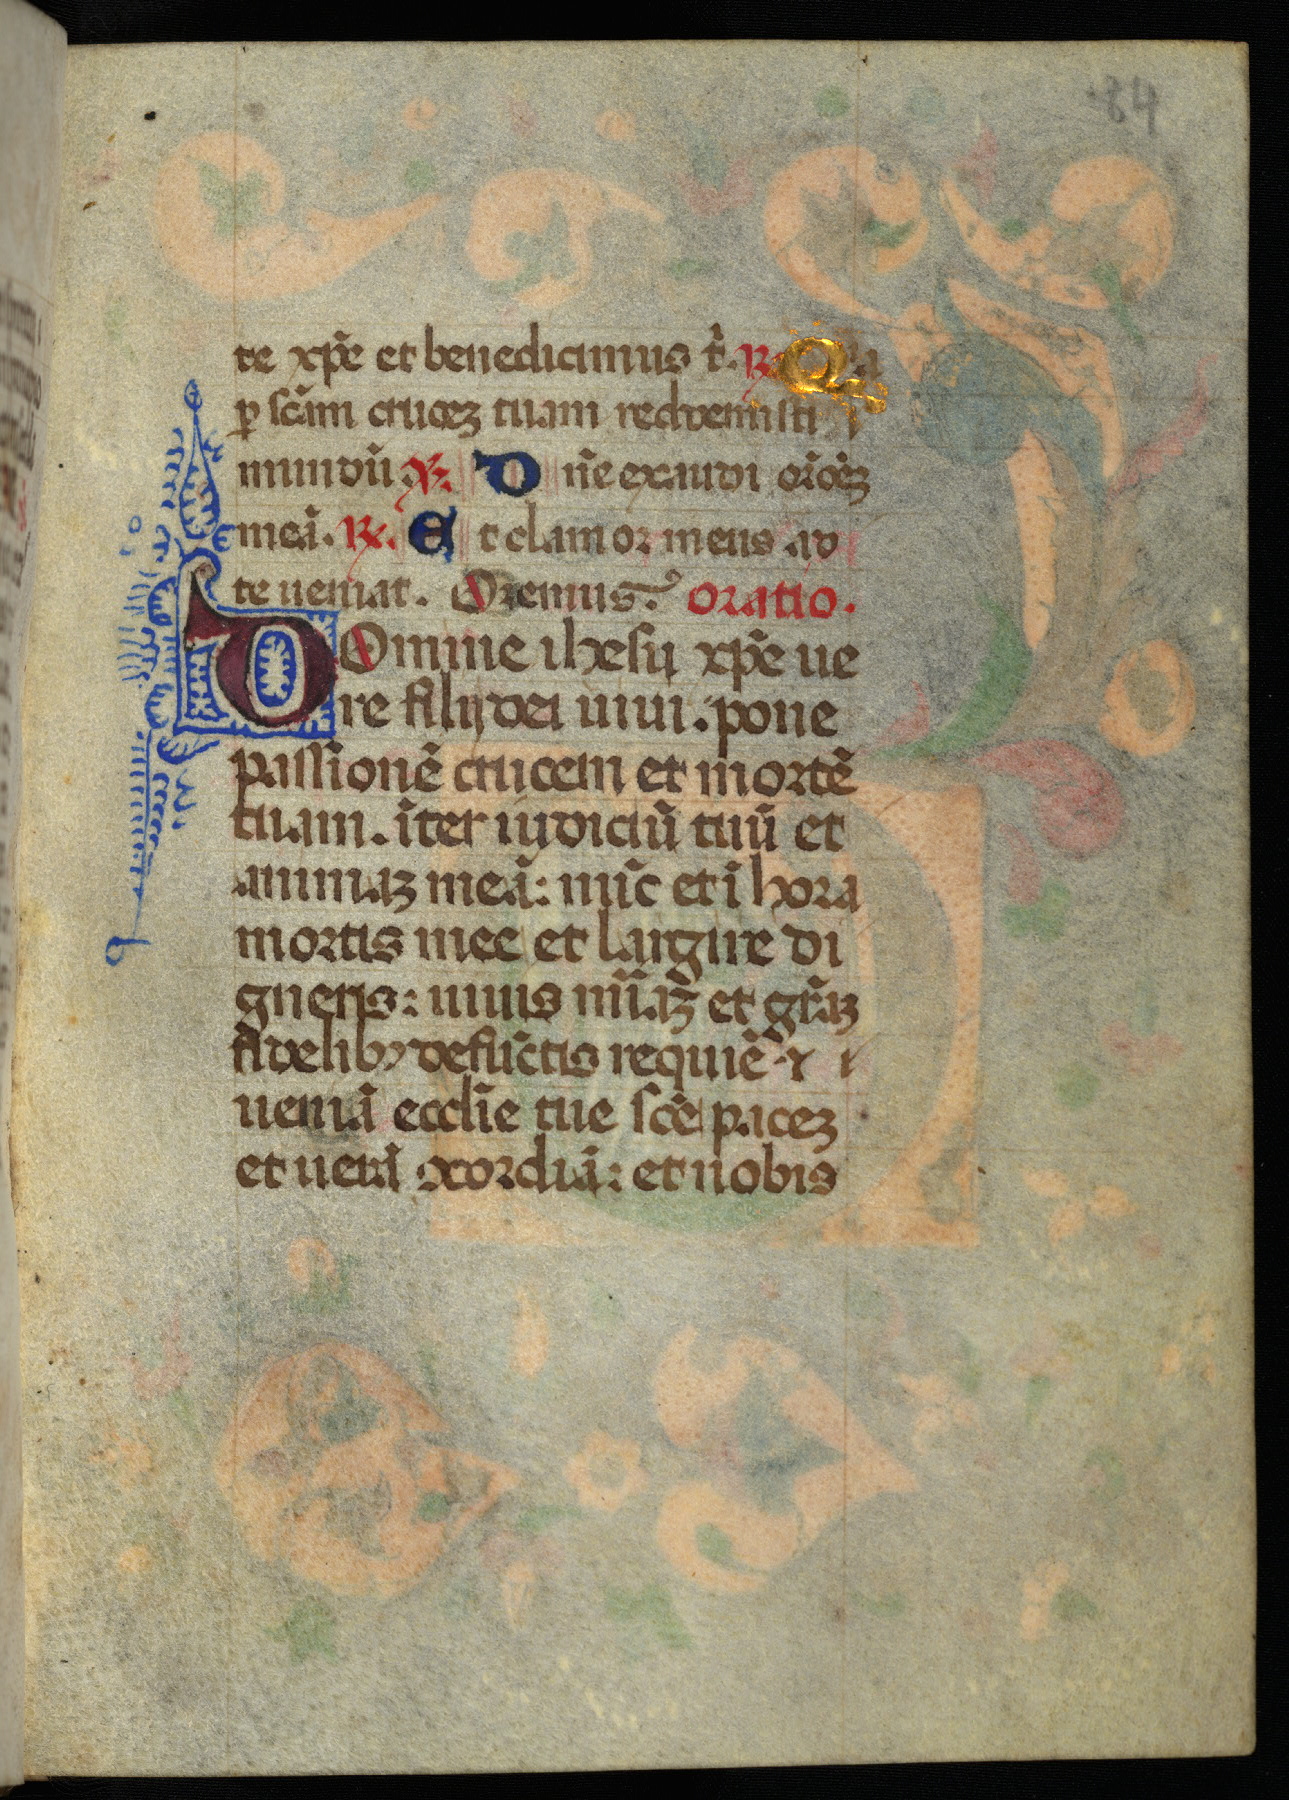 84
te xp̄e et benedicimus t̾. ℟. Qia
ꝑ sc̄am cruceꝫ tuam redeemisti
mundū ℣. D n̄e exaudi or̄oēꝫ
meā. ℟. E t clamor meus ad
te ueniat. Oremus. Oratio.
DOmine ihesu xp̄e ue
re filij dei uiui. pone
passionē crucem et mortē
tuam. īter iudiciū tuū et
animaꝫ meā: nūc et ī hora
mortis mee et largire di
gneris: uiuis m̄iaꝫ et gr̄aꝫ
fidelibꝫ defūctis requiē ⁊
ueniā ecclīe tue sc̄e paceꝫ
et uerā ꝯcordiā: et nobis